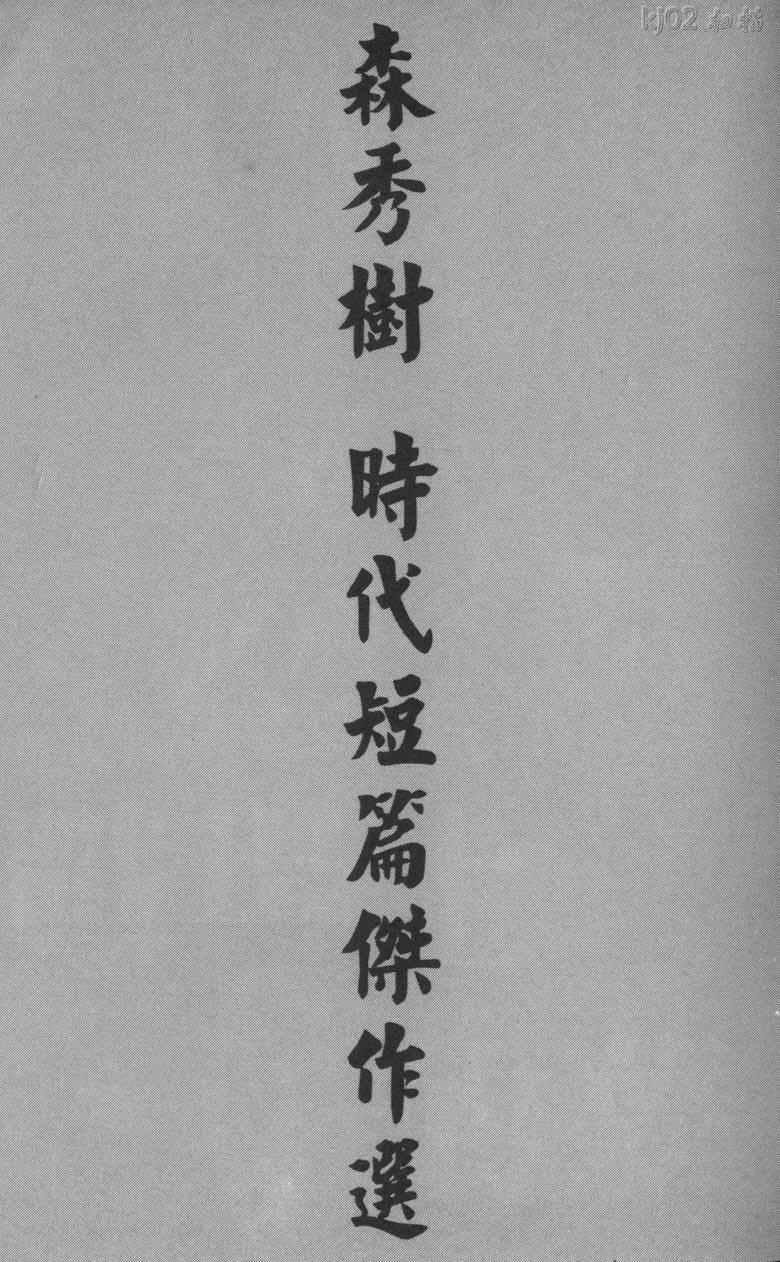 森秀樹 時代短篇傑作選
kj02